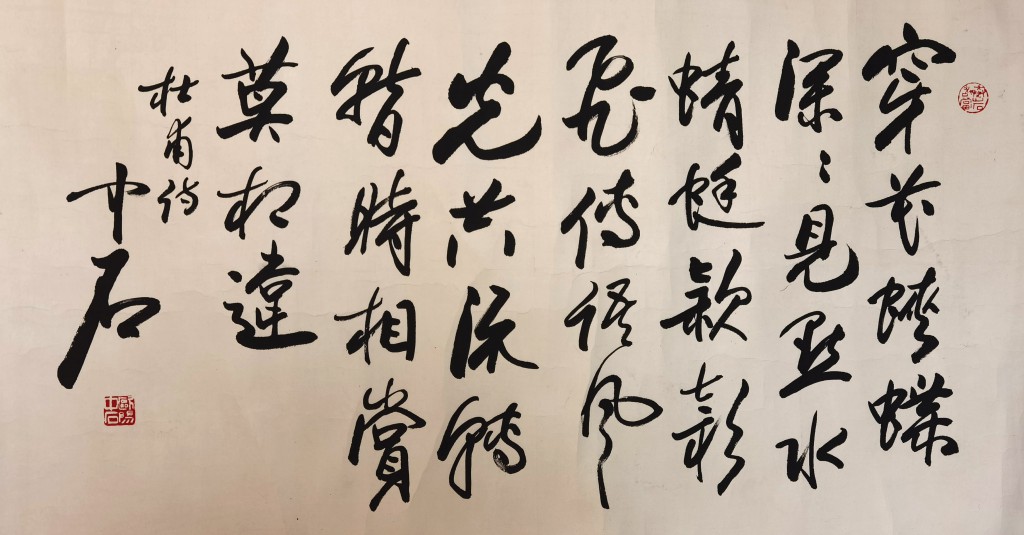 穿花蛺蝶
深〻見點水
蜻蜓款款
飛傳語風
光共流轉
暫時相賞
莫相違
杜甫詩
中石
歐陽中石